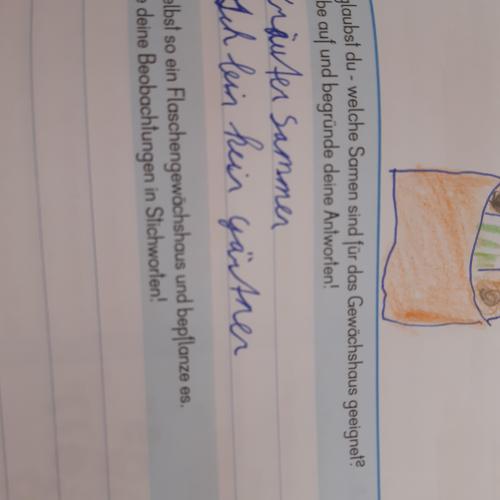 glaubst du - welche Samen sind für das Gewächshaus geeignet?
be auf und begründe deine Antworten!
kräuter Sammen
Ich bin kein gärtner
elbst so ein Flaschengewächshaus und bepflanze es.
e deine Beobachtungen in Stichworten!